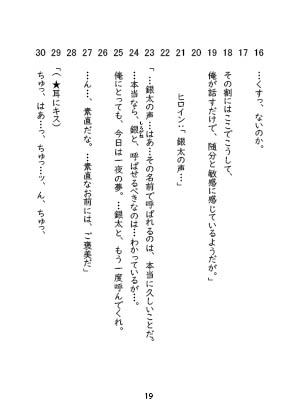 16 …くすっ、ないのか。
17
18 その割にはここでこうして、
19 俺が話すだけで、随分と敏感に感じているようだが。」
20
21 ヒロイン:「銀太の声…」
22
23 「…銀太の声…はあ…その名前で呼ばれるのは、本当に久しいことだ。
24 …本当なら、銀と、呼ばせるべきなのは…わかっているが…。
25 俺にとっても、今日は一夜の夢。…銀太と、もう一度呼んでくれ。
26
27 …ん…、素直だな。…素直なお前には、ご褒美だ」
28
29 「(★耳にキス)
30 ちゅっ、はあ…っ、ちゅっ…ッ、ん、ちゅっ、
19